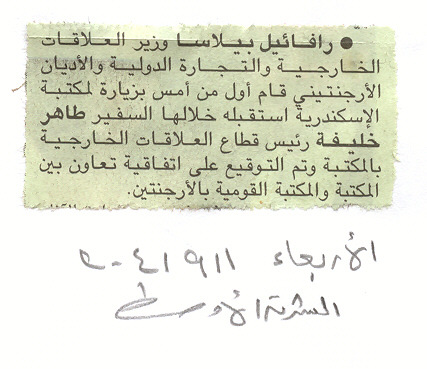 ● رافائيل بيلاسا وزير العلاقات
الخارجية والتجارة الدولية والأديان
الأرجنتيني قام أول من أمس بزيارة لمكتبة
الإسكندرية استقبله خلالها السفير طاهر
خليفة رئيس قطاع العلاقات الخارجية
بالمكتبة وتم التوقيع على اتفاقية تعاون بين
المكتبة والمكتبة القومية بالأرجنتين.
الأربعاء
الشرق الأوسط